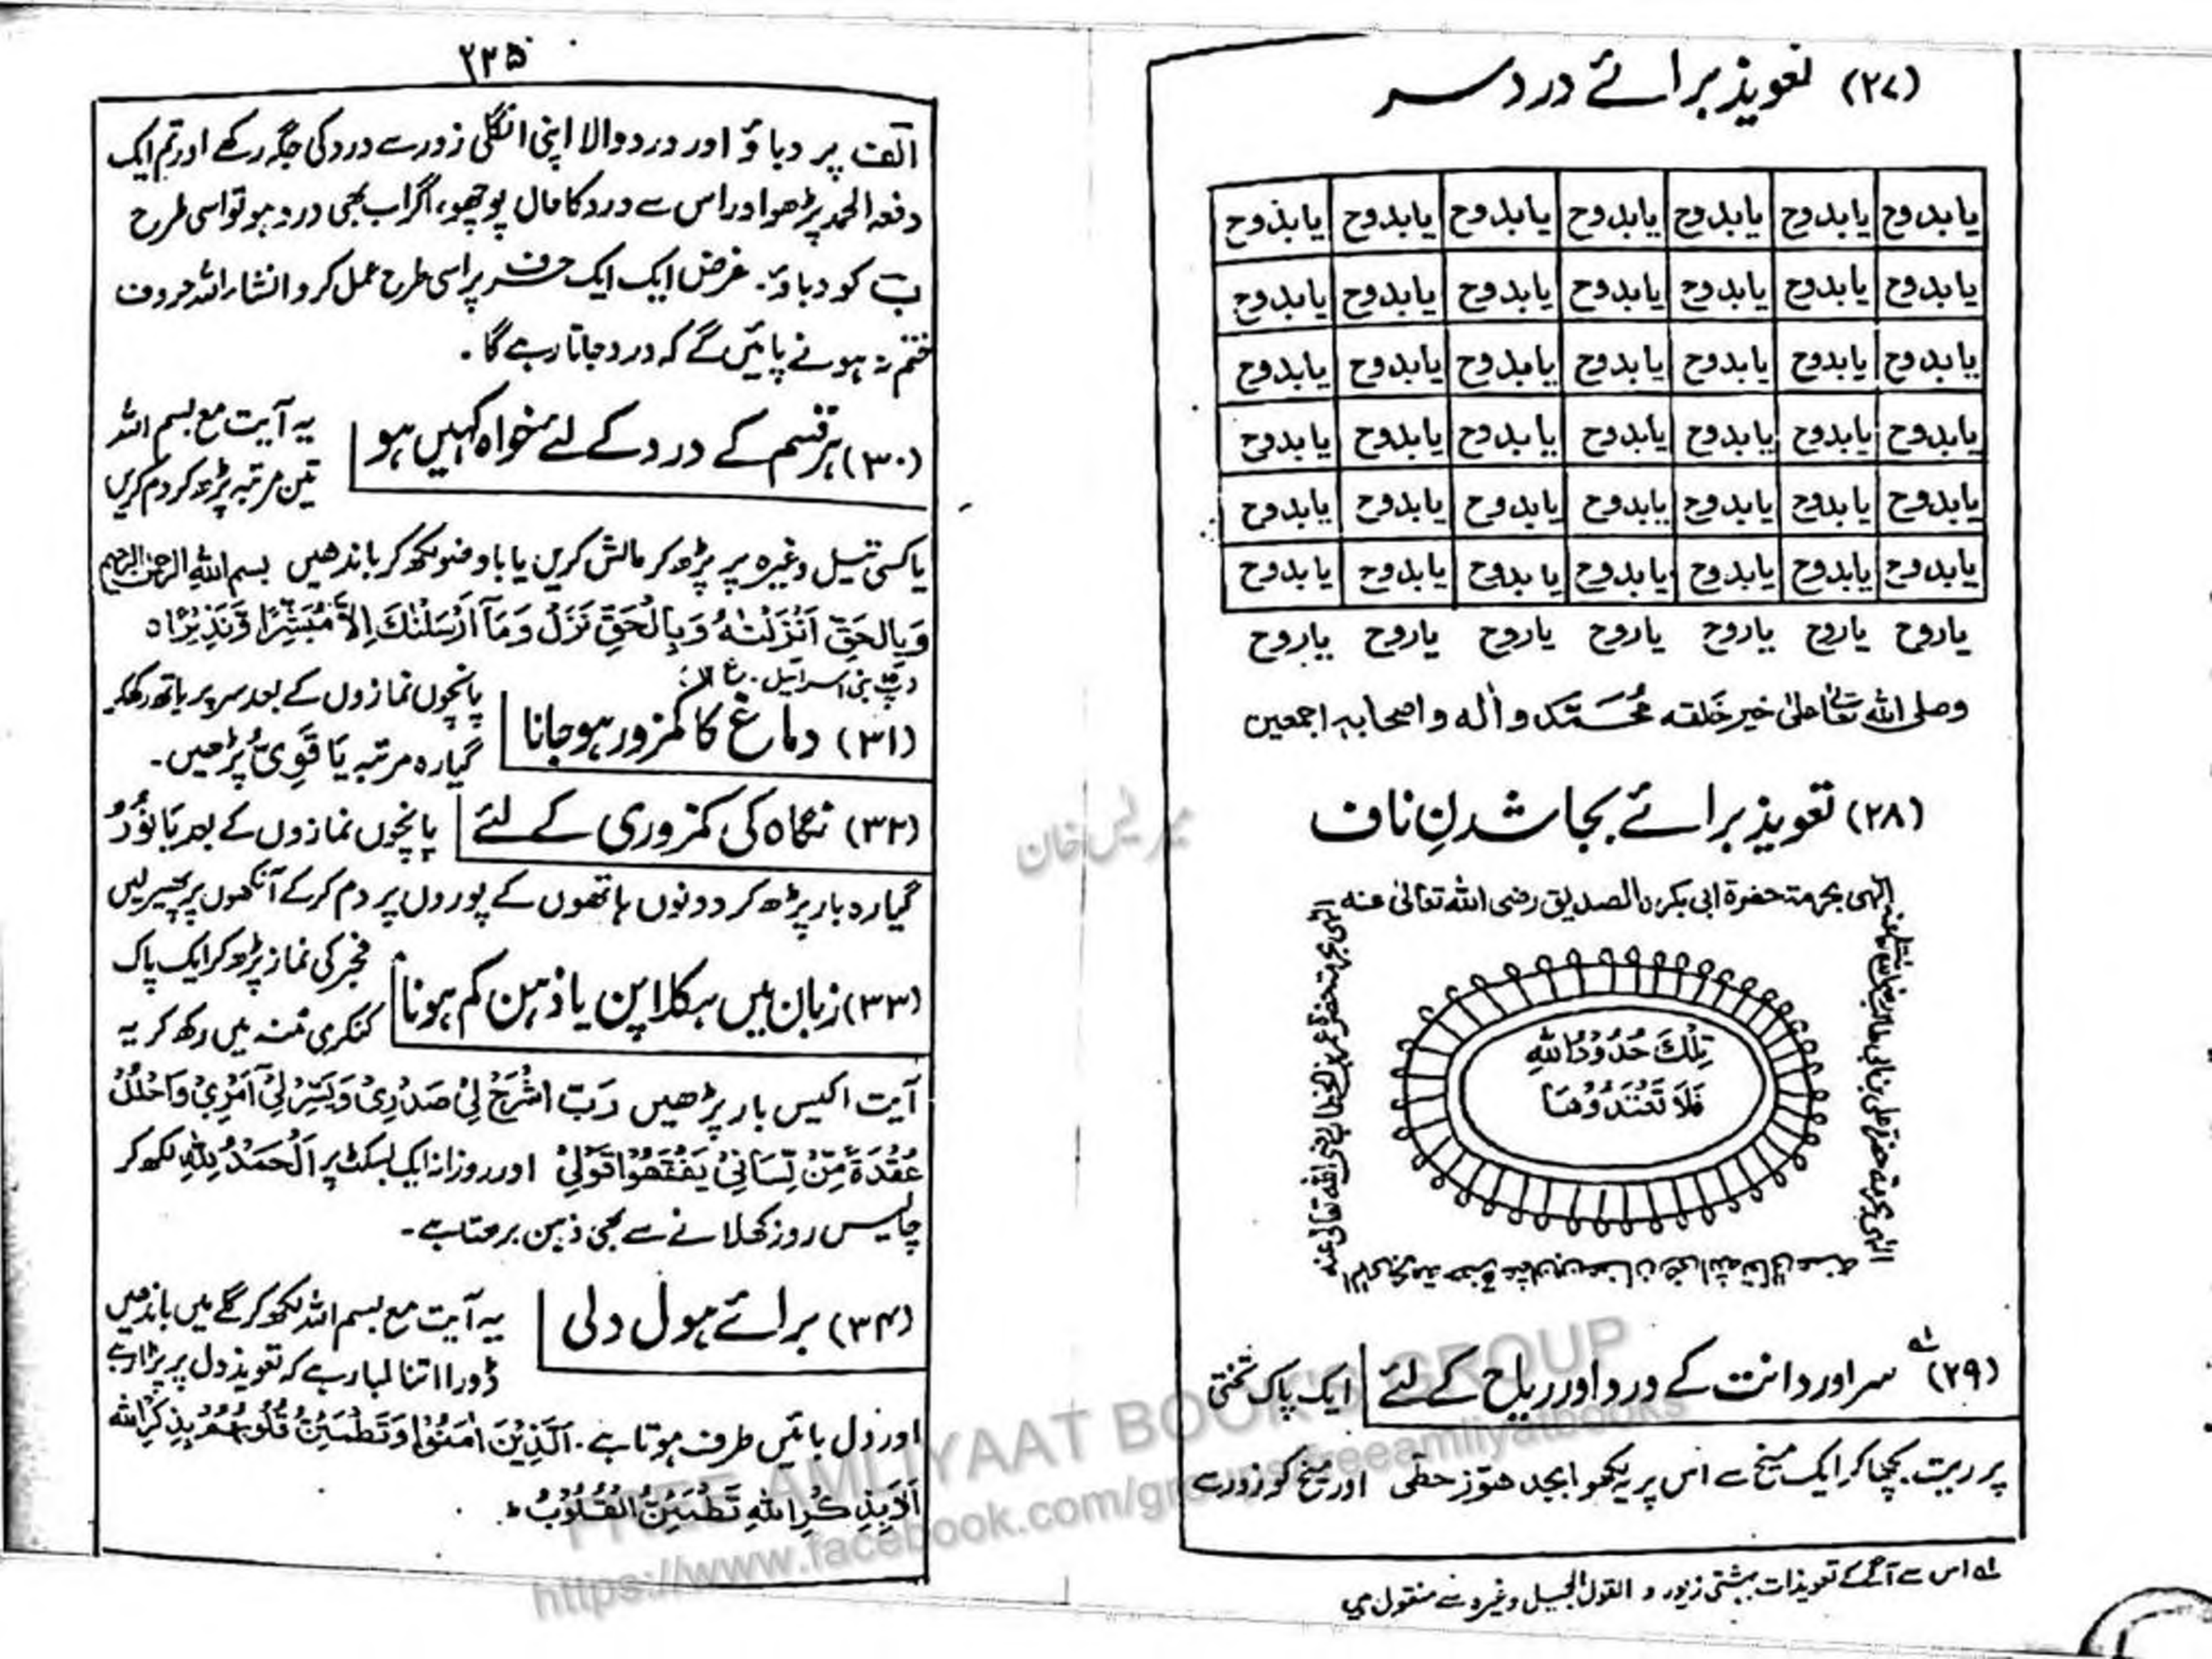 (۲۷) تعویذ برائے درد سر
یابدوح یابدوح یابدوح یابدوح یابدوح یابدوح یابدوح
یابدوح یابدوح یابدوح یابدوح یابدوح یابدوح یابدوح
یابدوح یابدوح یابدوح یابدوح یابدوح یابدوح یابدوح
یابدوح یابدوح یابدوح یابدوح یابدوح یابدوح یابدوح
یابدوح یابدوح یابدوح یابدوح یابدوح یابدوح یابدوح
یابدوح یابدوح یابدوح یابدوح یابدوح یابدوح یابدوح
یاروح یاروح یاروح یاروح یاروح یاروح یاروح
وصلی اللہ تعالیٰ علیٰ خیر خلقه محمد واٰله واصحابه اجمعین
(۲۸) تعویذ برائے بجا شدنِ ناف
الٰہی بحرمة حضرة ابی بکرن الصدیق رضی الله تعالیٰ عنه
الٰہی بحرمة حضرة عمر بن الخطاب رضی الله تعالیٰ عنه
تِلْكَ حُدُوْدُ اللهِ
فَلَا تَعْتَدُوْهَا
(۲۹) سر اور دانت کے درد اور ریاح کے لئے ایک پاک تختی
پر ریت بچھا کر ایک میخ سے اس پر یہ لکھو ابجد ھوّز حطّی اور میخ کو زور سے
لہ اس سے آگے کے تعویذات بہشتی زیور و القول الجمیل وغیرہ سے منقول ہیں
۲۳۵
الف پر دباؤ اور درد والا اپنی انگلی زور سے درد کی جگہ رکھے اور تم ایک
دفعہ الحمد پڑھو اور اس سے درد کا حال پوچھو، اگر اب بھی درد ہو تو اسی طرح
ب کو دباؤ۔ غرض ایک ایک حرف پر اسی طرح عمل کرو انشاء اللہ حروف
ختم نہ ہونے پائیں گے کہ درد جاتا رہے گا۔
(۳۰) ہر قسم کے درد کے لئے خواہ کہیں ہو یہ آیت مع بسم اللہ
تین مرتبہ پڑھ کر دم کریں
یا کسی تیل وغیرہ پر پڑھ کر مالش کریں یا باوضو لکھ کر باندھیں بسم اللہ الرحمن الرحیم
وَبِالْحَقِّ اَنْزَلْنٰهُ وَبِالْحَقِّ نَزَلَ وَمَآ اَرْسَلْنٰكَ اِلَّا مُبَشِّرًا وَّنَذِيْرًا ۝
بنی اسرائیل۔ ع
(۳۱) دماغ کا کمزور ہو جانا پانچوں نمازوں کے بعد سر پر ہاتھ رکھ کر
گیارہ مرتبہ یَا قَوِیُّ پڑھیں۔
(۳۲) نگاہ کی کمزوری کے لئے پانچوں نمازوں کے بعد یَا نُوْرُ
گیارہ بار پڑھ کر دونوں ہاتھوں کے پوروں پر دم کر کے آنکھوں پر پھیر لیں
(۳۳) زبان میں ہکلا پن یا ذہن کم ہونا فجر کی نماز پڑھ کر ایک پاک
کنکری منہ میں رکھ کر یہ
آیت اکیس بار پڑھیں رَبِّ اشْرَحْ لِيْ صَدْرِيْ وَيَسِّرْ لِيْٓ اَمْرِيْ وَاحْلُلْ
عُقْدَةً مِّنْ لِّسَانِيْ يَفْقَهُوْا قَوْلِيْ اور روزانہ ایک بسکٹ پر اَلْحَمْدُ لِلّٰهِ لکھ کر
چالیس روز کھلانے سے بھی ذہن بڑھتا ہے۔
(۳۴) برائے ہول دلی یہ آیت مع بسم اللہ لکھ کر گلے میں باندھیں
ڈورا اتنا لمبا رہے کہ تعویذ دل پر پڑا رہے
اور دل بائیں طرف ہوتا ہے۔ اَلَّذِيْنَ اٰمَنُوْا وَتَطْمَئِنُّ قُلُوْبُهُمْ بِذِكْرِ اللهِ
اَلَا بِذِكْرِ اللهِ تَطْمَئِنُّ الْقُلُوْبُ ط
FREE AMLIYAAT BOOK'S GROUP
https://www.facebook.com/groups/freeamliyatbooks